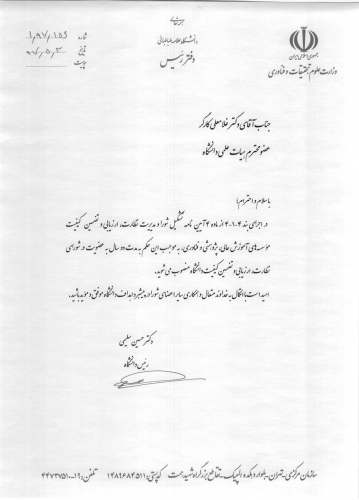 بسمه‌تعالی
جمهوری اسلامی ایران
وزارت علوم تحقیقات و فناوری
دانشگاه علامه طباطبائی
دفتر رئیس
شماره
تاریخ
پیوست
جناب آقای دکتر غلامعلی کارگر
عضو محترم هیات علمی دانشگاه
با سلام و احترام؛
در اجرای بند ۴-۱-۴ از ماده ۴ آیین نامه تشکیل شورا و مدیریت نظارت، ارزیابی و تضمین کیفیت
موسسه‌های آموزش عالی، پژوهشی و فناوری، به موجب این حکم به مدت دو سال به عضویت در شورای
نظارت، ارزیابی و تضمین کیفیت دانشگاه منصوب می‌شوید.
امید است با اتکال به خداوند متعال و همکاری سایر اعضای شورا در پیشبرد اهداف دانشگاه موفق و موید باشید.
دکتر حسین سلیمی
رئیس دانشگاه
سازمان مرکزی - تهران - بلوار دهکده المپیک - تقاطع بزرگراه شهید همت کدپستی: ۱۴۸۹۶۸۴۵۱۱ تلفن: ۱۹-۴۴۷۳۷۵۱۰